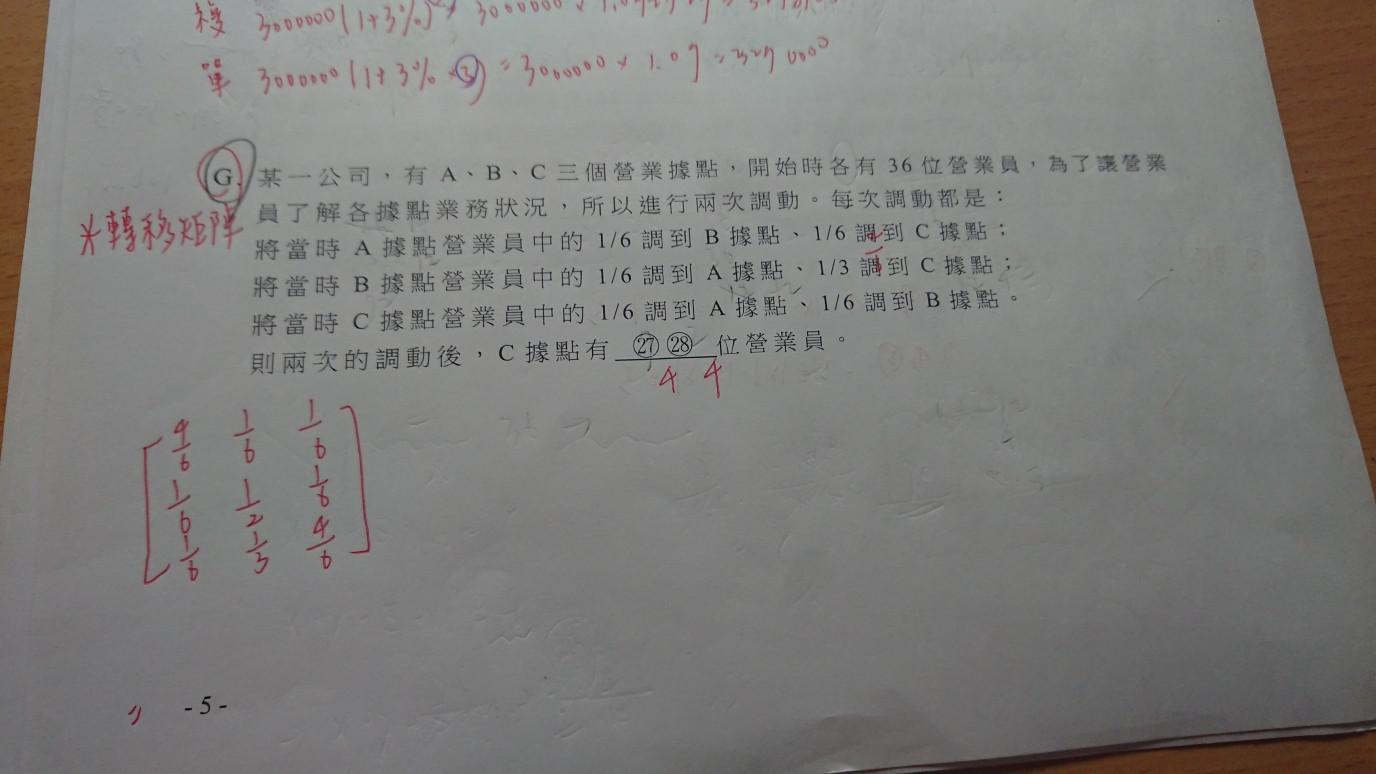 複 3000000(1+3%) 3000000 ×
單 3000000(1+3% ×3) = 3000000 × 1.09 = 3270000
G. 某一公司，有 A、B、C 三個營業據點，開始時各有 36 位營業員，為了讓營業
*轉移矩陣 員了解各據點業務狀況，所以進行兩次調動。每次調動都是：
將當時 A 據點營業員中的 1/6 調到 B 據點、1/6 調到 C 據點；
將當時 B 據點營業員中的 1/6 調到 A 據點、1/3 調到 C 據點；
將當時 C 據點營業員中的 1/6 調到 A 據點、1/6 調到 B 據點。
則兩次的調動後，C 據點有 ㉗ ㉘ 位營業員。
4 4
4/6 1/6 1/6
1/6 1/2 1/6
1/6 1/3 4/6
- 5 -